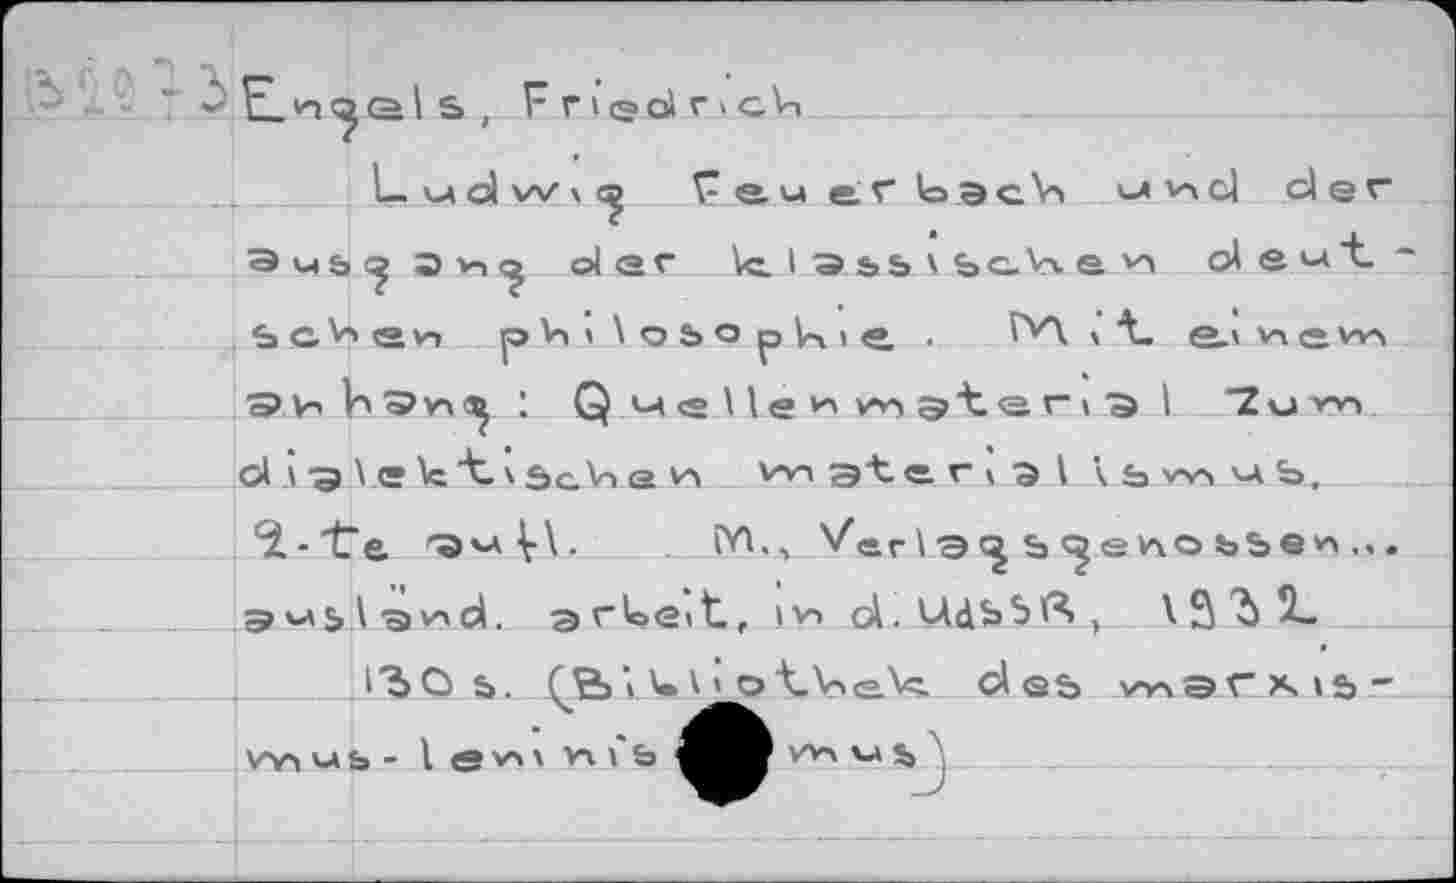 Engels, Friedrich
Ludwig Feuerbach und der
ausgang der klassischen deut-
schen philosophie. Mit einem
anhang: Quellenmaterial zum
dialektischen materialismus.
2-te aufl. M., Verlagsgenossen...
ausländ. arbeit, in d. UdSSR, 1932
130 s. (Bibliothek des marxis-
mus-leninismus)